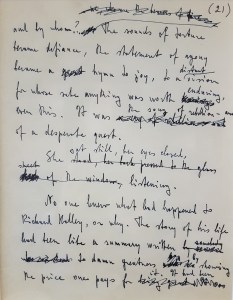 (21)
and by whom? The sounds of torture
became defiance, the statement of agony
became a hymn to joy, to a distant vision
for whose sake anything was worth enduring,
even this. It was the song of rebellion — and
of a desperate quest.
She sat still, her eyes closed,
listening.
No one knew what had happened to
Richard Halley, or why. The story of his life
had been like a summary written
to damn greatness by showing
the price one pays for it. It had been